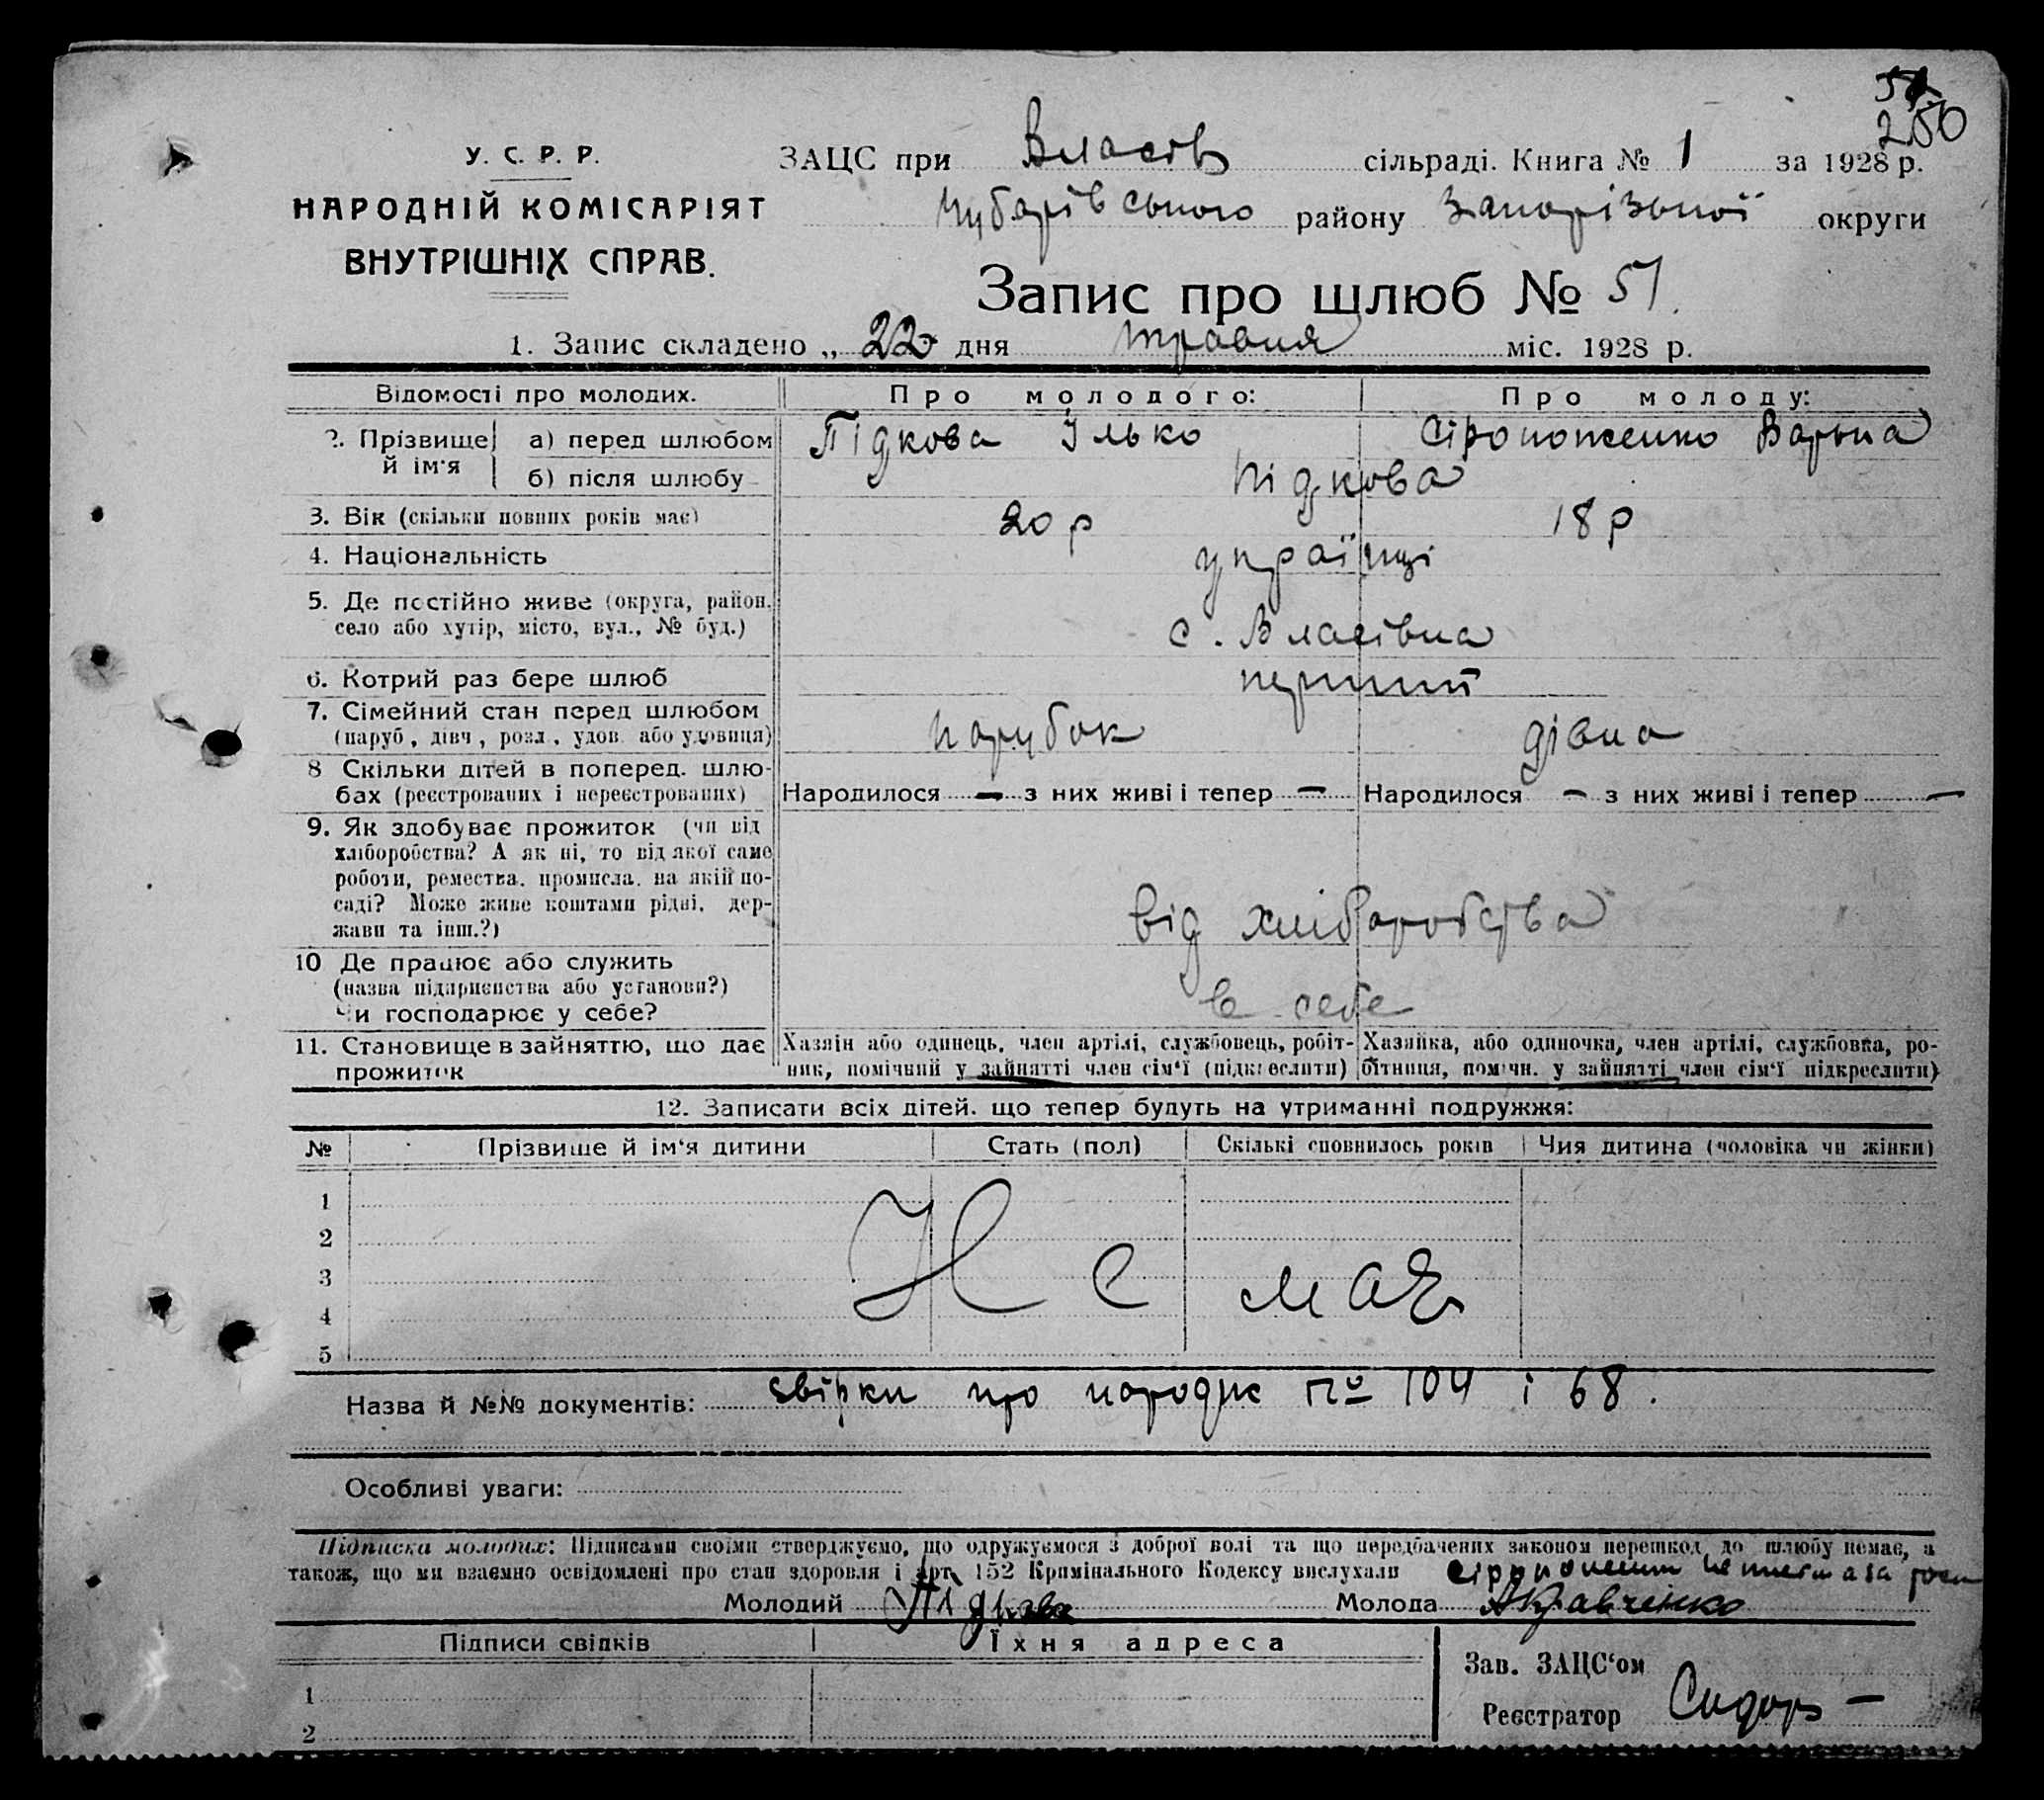 250
У. С. Р. Р.
НАРОДНІЙ КОМІСАРІЯТ
ВНУТРІШНІХ СПРАВ.
ЗАЦС при Власів сільраді. Книга № 1 за 1928 р.
Чубарівського району Запорізької округи
Запис про шлюб № 51.
1. Запис складено „ 22 дня травня міс. 1928 р.
Відомості про молодих. Про молодого: Про молоду:
2. Прізвище й ім'я а) перед шлюбом Підкова Ілько Сіроноженко Варька
б) після шлюбу Підкова
3. Вік (скільки повних років має) 20 р 18 р
4. Національність українці
5. Де постійно живе (округа, район,
село або хутір, місто, вул., № буд.) с. Власівка
6. Котрий раз бере шлюб перший
7. Сімейний стан перед шлюбом
(паруб, дівч, розл, удов або удовиця) парубок дівка
8 Скільки дітей в поперед. шлю-
бах (реєстрованих і нереєстрованих) Народилося — з них живі і тепер — Народилося — з них живі і тепер —
9. Як здобуває прожиток (чи від
хліборобства? А як ні, то від якої саме
роботи, ремества, промисла, на якій по-
саді? Може живе коштами рідні, дер-
жави та інш.?) від хліборобства
10 Де працює або служить
(назва підприємства або установи?)
Чи господарює у себе? в себе
11. Становище в зайняттю, що дає
прожиток
Хазяін або одинець, член артілі, службовець, робіт-
ник, помічний у зайнятті член сім'ї (підкреслити)
Хазяйка, або одиночка, член артілі, службовка, ро-
бітниця, помічн. у зайнятті член сім'ї підкреслити)
12. Записати всіх дітей, що тепер будуть на утриманні подружжя:
№ Прізвище й ім'я дитини Стать (пол) Скількі сповнилось років Чия дитина (чоловіка чи жінки)
1
2
3
4
5
Не має
Назва й №№ документів: звірки про народж № 104 і 68.
Особливі уваги:
Підписка молодих: Підписами своїми стверджуємо, що одружуємося з доброї волі та що передбачених законом перешкод до шлюбу немає, а
також, що ми взаємно освідомлені про стан здоровля і арт. 152 Кримінального Кодексу вислухали
Молодий Підкова Молода АКравченко
Підписи свідків Їхня адреса
1
2
Зав. ЗАЦС'ом
Реєстратор Сидор